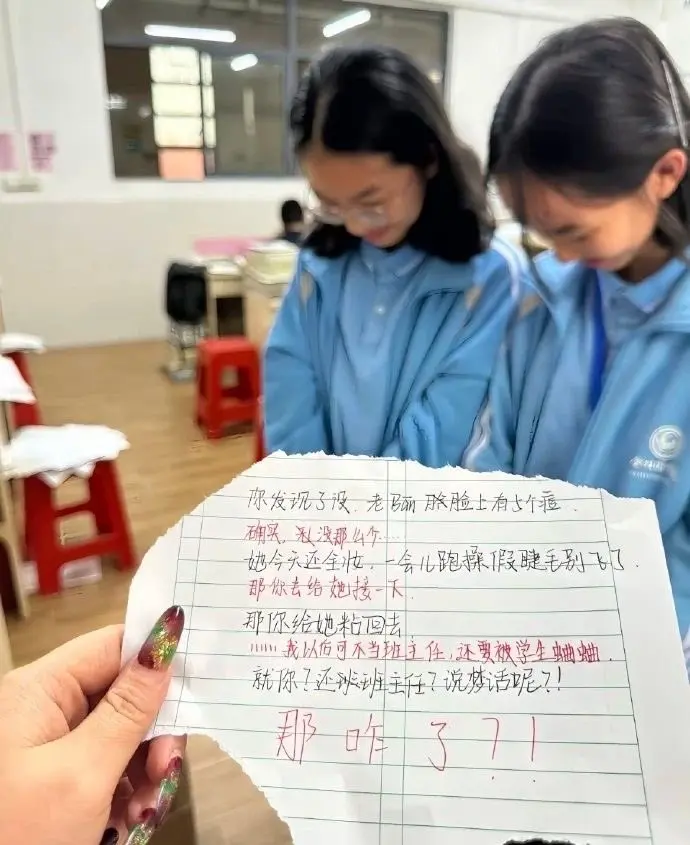 你发现了没,老师脸上有5个痘.
确实,我没那么个……
她今天还全妆,一会儿跑操假睫毛别飞了.
那你去给她接一下.
那你给她粘回去
……我以后可不当班主任,还要被学生蛐蛐.
就你?还班班主任?说梦话呢?!
那咋了?!